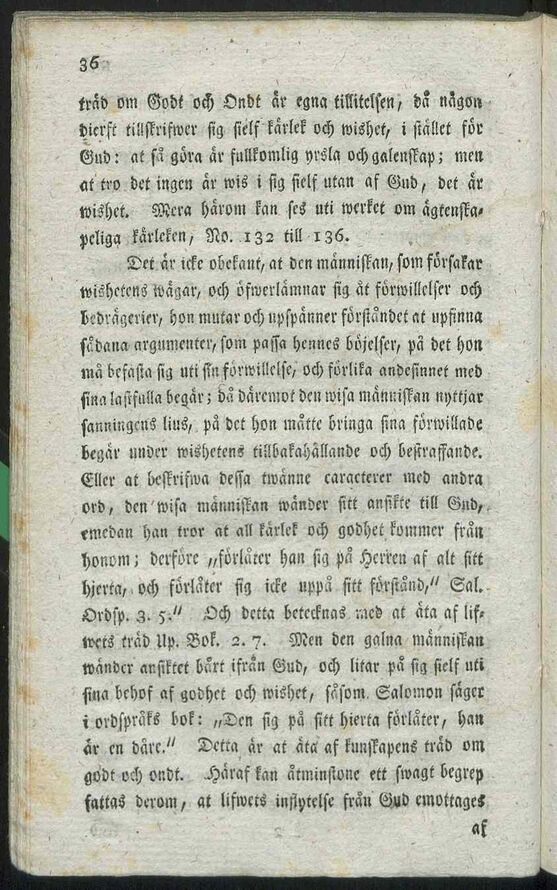 36
träd om Godt och Ondt är egna tillitelsen, då någon
dierft tillskrifwer sig sielf kärlek och wishet, i stället för
Gud: at så göra är fullkomlig yrsla och galenskap; men
at tro det ingen är wis i sig sielf utan af Gud, det är
wishet. Mera härom kan ses uti werket om ägtenska-
peliga kärleken, No. 132 till 136.
Det är icke obekant, at den människan, som försakar
wishetens wägar, och öfwerlämnar sig åt förwillelser och
bedrägerier, hon mutar och upspänner förståndet at upfinna
sådana argumenter, som passa hennes böjelser, på det hon
må befästa sig uti sin förwillelse, och förlika andesinnet med
sina lastfulla begär; då däremot den wisa människan nyttjar
sanningens lius, på det hon måtte bringa sina förwillade
begär under wishetens tillbakahållande och bestraffande.
Eller at beskrifwa dessa twänne caracterer med andra
ord, den wisa människan wänder sitt ansikte till Gud,
emedan han tror at all kärlek och godhet kommer från
honom; derföre „förlåter han sig på Herren af alt sitt
hjerta, och förlåter sig icke uppå sitt förstånd,“ Sal.
Ordsp. 3. 5.“ Och detta betecknas med at äta af lif-
wets träd Up. Bok. 2. 7. Men den galna människan
wänder ansiktet bårt ifrån Gud, och litar på sig sielf uti
sina behof af godhet och wishet, såsom Salomon säger
i ordspråks bok: „Den sig på sitt hierta förlåter, han
är en dåre.“ Detta är at äta af kunskapens träd om
godt och ondt. Häraf kan åtminstone ett swagt begrep
fattas derom, at lifwets inflytelse från Gud emottages
af